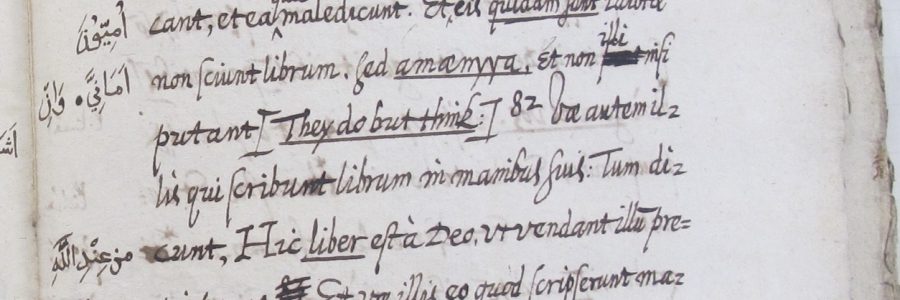 cant, et ea maledicunt. Et eis quidam sunt
أُمِيُّونَ
non sciunt librum. sed amænyya. Et non illi nisi
أَمَانِيَّ وَإِنْ
putant [They do but think:] 82 Væ autem il-
lis qui scribunt librum in manibus suis: Tum di-
cunt, Hic liber est à Deo. vt vendant illū pre-
مِنْ عِنْدِ اللَّهِ
Et væ illis eo quod scripserunt ma-